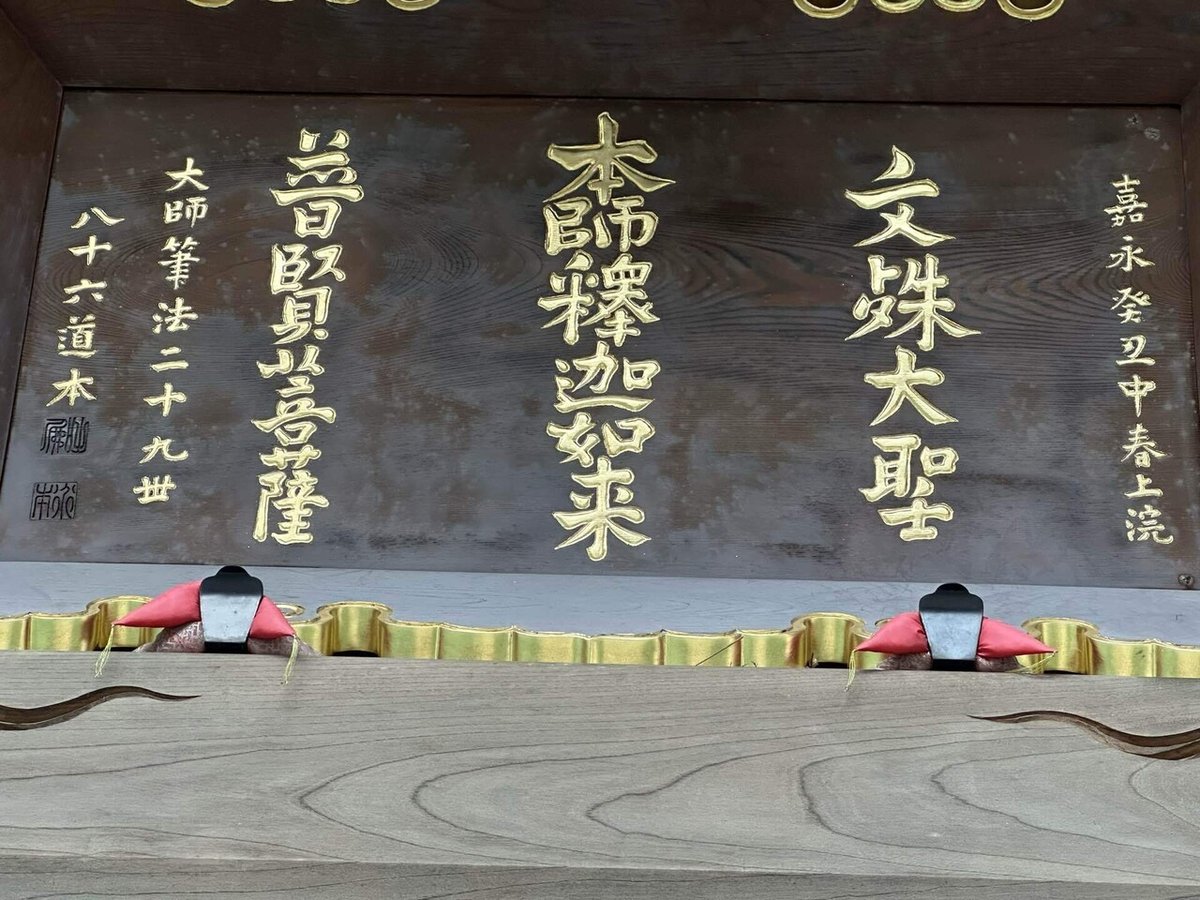 嘉永癸丑中春上浣
文殊大聖
本師釋迦如来
普賢菩薩
大師筆法二十九丗
八十六道本